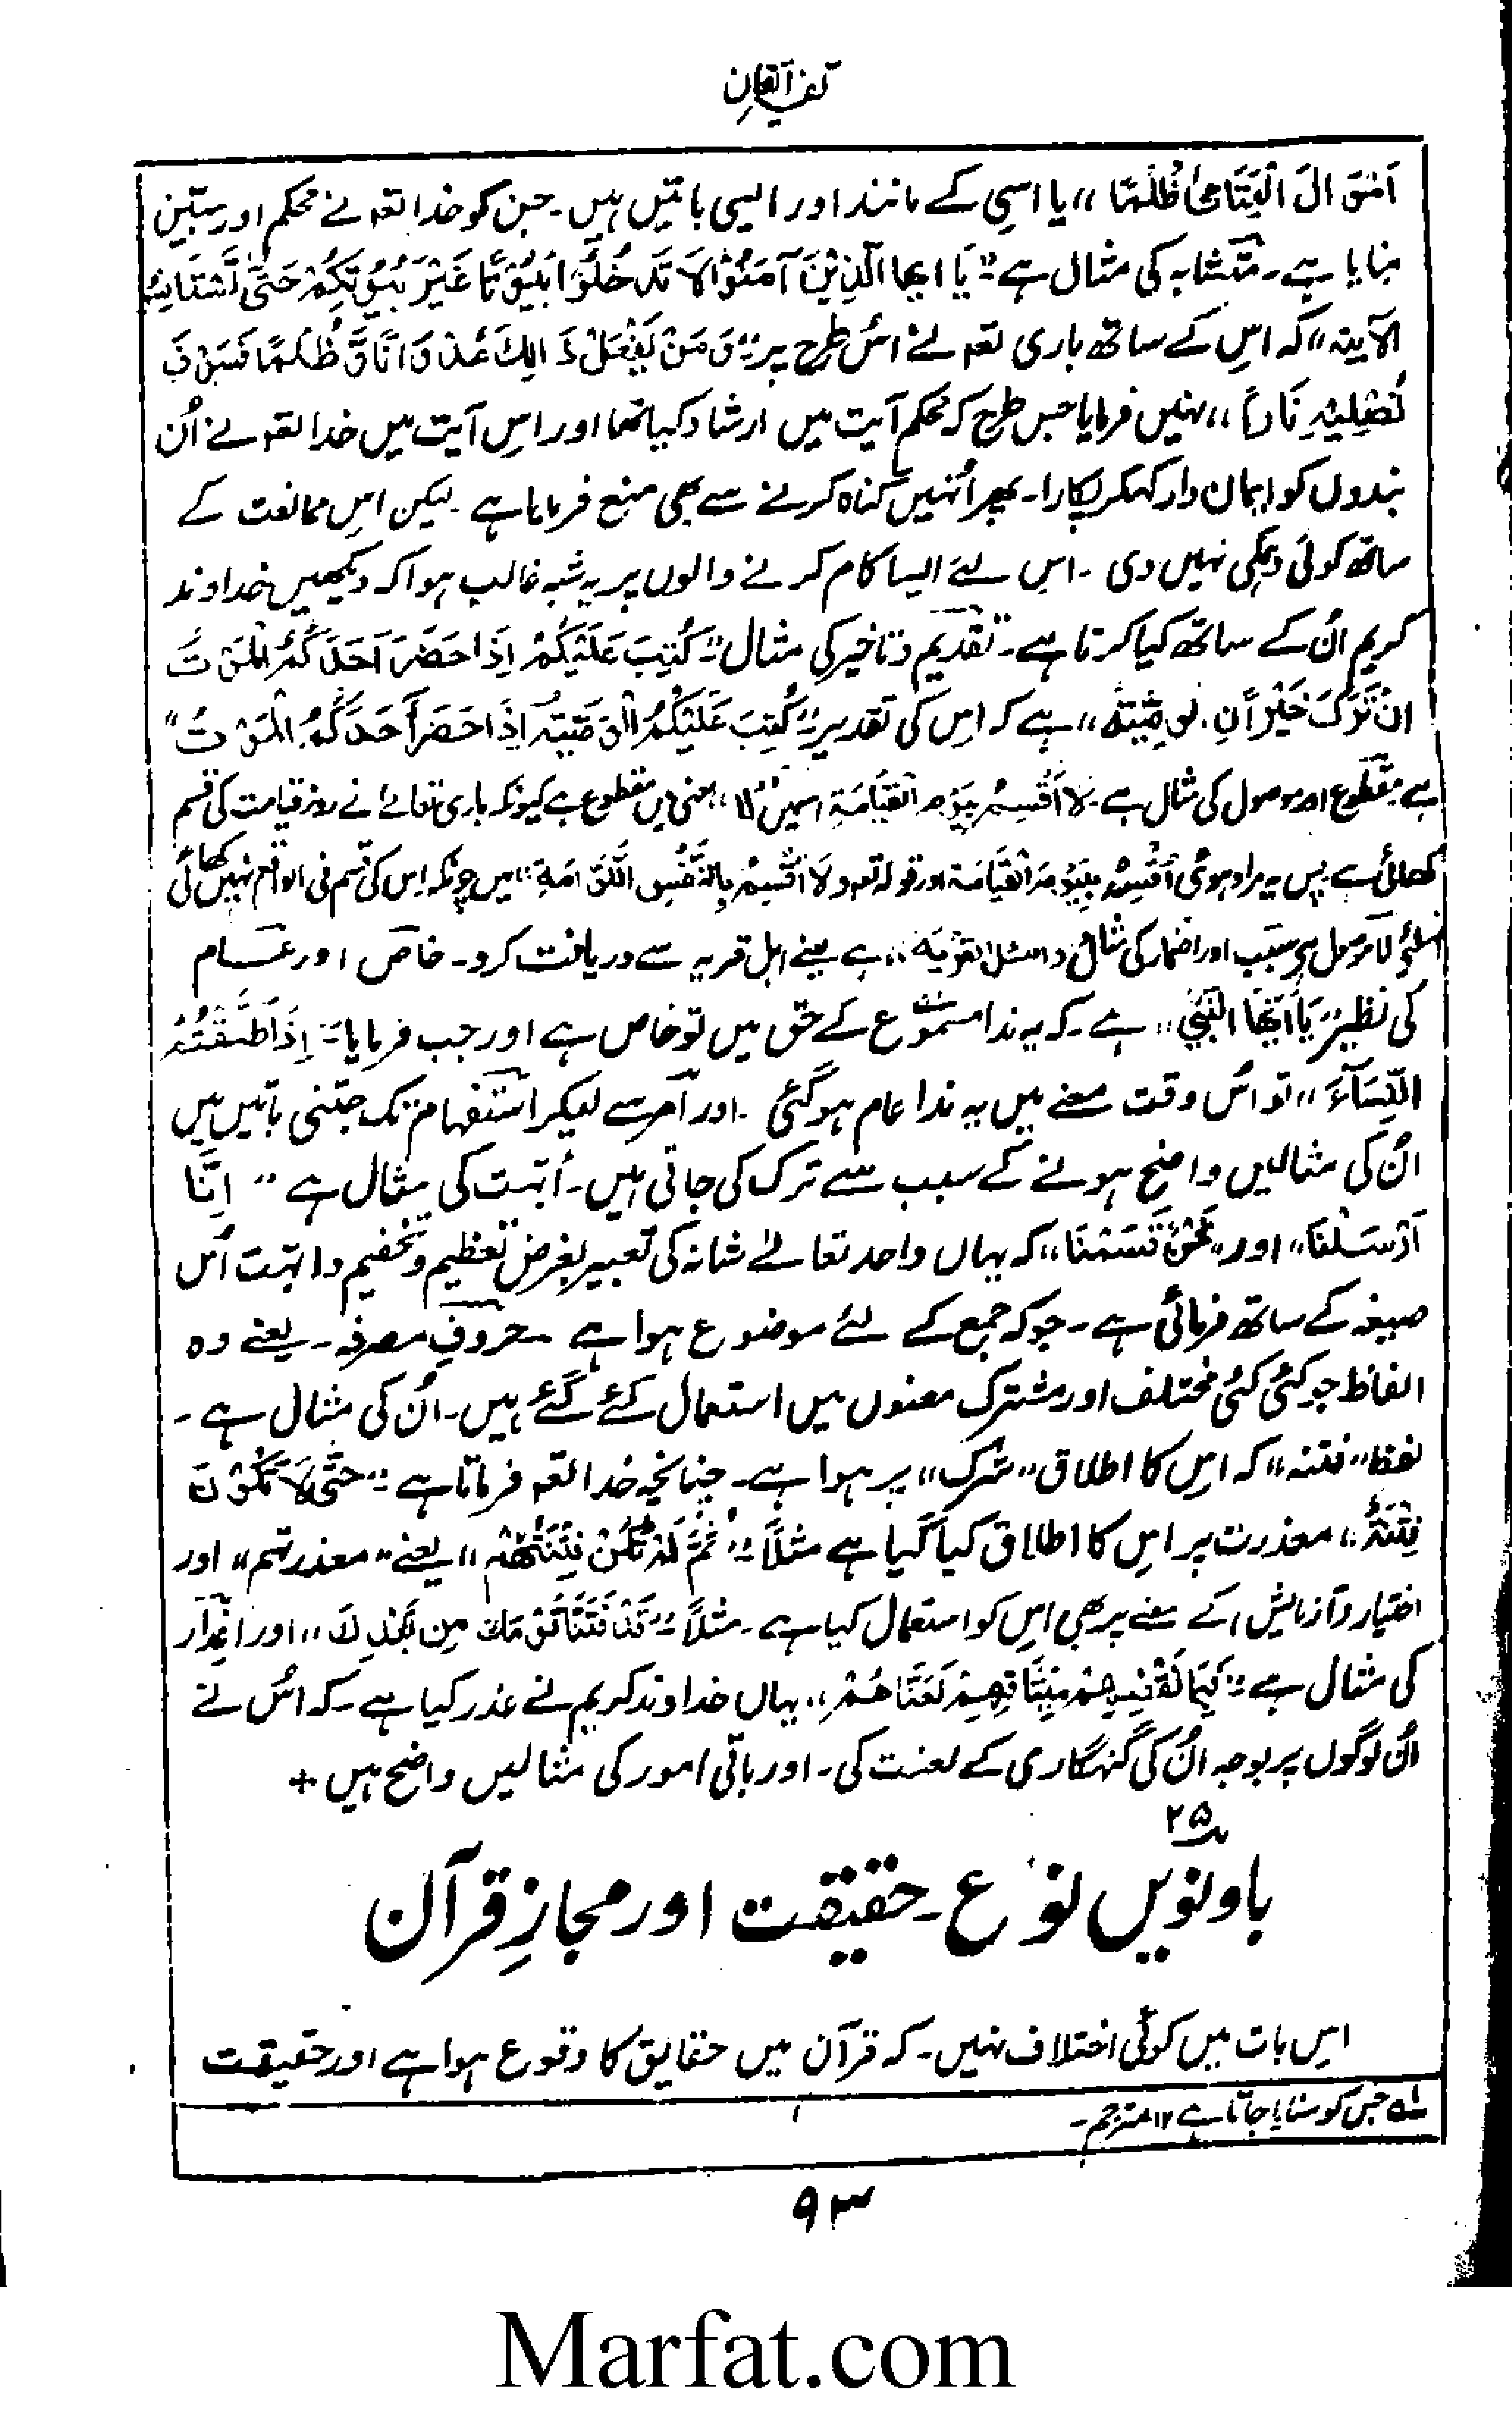 تفسیر اتقان
اَمْوَالَ الْیَتَامیٰ ظُلْمًا ،، یا اسی کے مانند اور ایسی باتیں ہیں۔ جن کو خدا تعہ نے محکم اور مبیّن
بنایا ہے۔ متشابہ کی مثال ہے :" یَا ایھا الَّذِیْنَ آمَنُوْا لَا تَدْخُلُوْا بُیُوْتًا غَیْرَ بُیُوْتِکُمْ حَتّٰی تَسْتَانِسُوْا
الآیۃ ،، کہ اِس کے ساتھ باری تعہ نے اُس طرح پر :" وَ مَنْ یَفْعَلْ ذَالِكَ عُدْوَانًا وَّ ظُلْمًا فَسَوْفَ
نُصْلِیْہِ نَارًا ،، نہیں فرمایا جس طرح کہ محکم آیت میں ارشاد کیا تھا اور اِس آیت میں خدا تعہ نے اُن
بندوں کو ایمان دار کہکر پکارا۔ پھر اُنہیں گناہ کرنے سے بھی منع فرمایا ہے۔ لیکن اِس ممانعت کے
ساتھ کوئی دہمکی نہیں دی ۔ اِس لئے ایسا کام کرنے والوں پر یہ شبہ غالب ہوا کہ دیکھیں خداوند
کریم اُن کے ساتھ کیا کرتا ہے۔ تقدیم و تاخیر کی مثال :" کُتِبَ عَلَیْکُمْ اِذَا حَضَرَ اَحَدَکُمُ الْمَوْتُ
اِنْ تَرَكَ خَیْرَاَنِ، لْوَصِیَّتُہ ،، ہے کہ اِس کی تقدیر :" کُتِبَ عَلَیْکُمُ الْوَصِیَّۃُ اِذَا حَضَرَ اَحَدَکُمُ الْمَوْتُ "
ہے مقطوع اور موصول کی مثال ہے لَا اُقْسِمُ بِیَوْمِ الْقِیَامَۃِ اسمیں "لا،، معنی میں مقطوع ہے کیونکہ باری تعالےٰ نے روز قیامت کی قسم
کھائی ہے پس یہ مراد ہوئی اُقْسِمُ بِیَوْمِ الْقِیَامَۃ اور قولہ تعہ وَ لَا اُقْسِمُ بِالنَّفْسِ اللَّوَّامَۃِ ،، میں چونکہ اِس کی قسم فی الواقع نہیں کھائی
اسلئے لَا موصول ہے سبب اور اضمار کی مثال وَاسْئَلِ الْقَرْیَۃَ ،، ہے یعنے اہل قریہ سے دریافت کرو۔ خاص اور عام
کی نظیر :" یَا اَیُّھَا النَّبِیُّ ،، ہے۔ کہ یہ ندا مسموع کے حق میں تو خاص ہے اور جب فرمایا :" اِذَا طَلَّقْتُمُ
النِّسَآءَ ،، تو اُس وقت معنے میں یہ ندا عام ہوگئی ۔ اور امر سے لیکر استفہام تک جتنی باتیں ہیں
اُن کی مثالیں واضح ہونے کے سبب سے ترک کی جاتی ہیں۔ اُبہت کی مثال ہے " اِنَّا
اَرْسَلْنَا ،، اور " نَحْنُ قَسَمْنَا ،، کہ یہاں واحد تعالےٰ شانہ کی تعبیر بغرض تعظیم و تفخیم و ابہت اُس
صیغہ کے ساتھ فرمائی ہے۔ جو کہ جمع کے لئے موضوع ہوا ہے ۔ حروف مصرفہ۔ یعنے وہ
الفاظ جو کئی کئی مختلف اور مشترک معنوں میں استعمال کئے گئے ہیں۔ اُن کی مثال ہے۔
لفظ " فتنہ ،، کہ اِس کا اطلاق " شرک ،، پر ہوا ہے۔ چنانچہ خدا تعہ فرماتا ہے :" حَتّٰی لَا تَکُوْنَ
فِتْنَۃٌ ،، معذرت پر اِس کا اطلاق کیا گیا ہے مثلاً :" ثُمَّ لَمْ تَکُنْ فِتْنَتُھُمْ ،، یعنے " معذرتہم ،، اور
اختیار (آزمایش) کے معنے پر بھی اِس کو استعمال کیا ہے۔ مثلاً :" قَدْ فَتَنَّا قَوْمَكَ مِن بَعْدِكَ ،، اور اعذار
کی مثال ہے :" فَبِمَا نَقْضِہِمْ مِیْثَاقَہِمْ لَعَنَّاہُمْ ،، یہاں خداوند کریم نے عذر کیا ہے۔ کہ اُس نے
اُن لوگوں پر بوجہ اُن کی گنہگاری کے لعنت کی۔ اور باقی امور کی مثالیں واضح ہیں +
۲۵
باونویں نوع ۔ حقیقت اور مجازِ قرآن
اِس بات میں کوئی اختلاف نہیں۔ کہ قرآن میں حقایق کا وقوع ہوا ہے اور حقیقت
لہ جس کو سنایا جاتا ہے ۱۲ مترجم۔
۹۳
Marfat.com